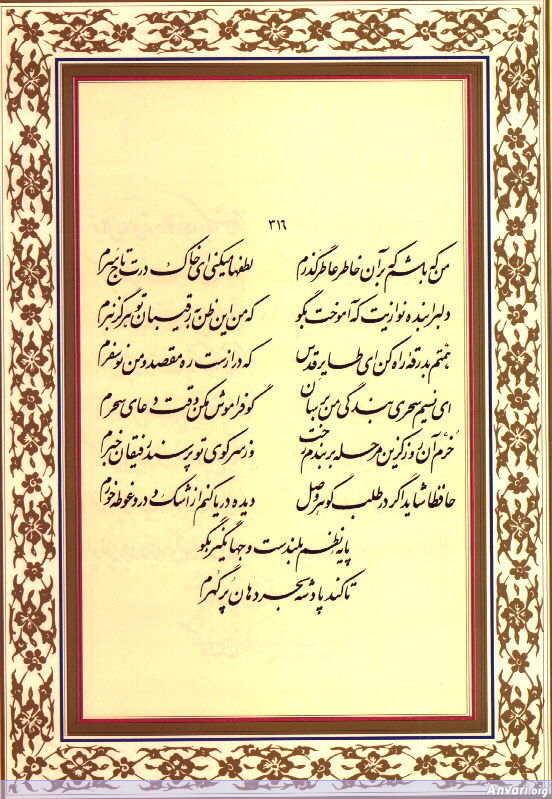 ۳۱۶
من که باشم که بر آن خاطر عاطر گذرم لطفها میکنی ای خاک درت تاج سرم
دلبرا بنده نوازیت که آموخت بگو که من این ظن به رقیبان تو هرگز نبرم
همتم بدرقه راه کن ای طایر قدس که درازست ره مقصد و من نو سفرم
ای نسیم سحری بندگی من برسان گو فراموش مکن وقت دعای سحرم
خرم آن روز کزین مرحله بربندم رخت وز سر کوی تو پرسند رفیقان خبرم
حافظا شاید اگر در طلب گوهر وصل دیده دریا کنم از اشک و درو غوطه خورم
پایه نظم بلندست و جهانگیر بگو
تا کند پادشه بحر دهان پر گهرم
Anvari.org